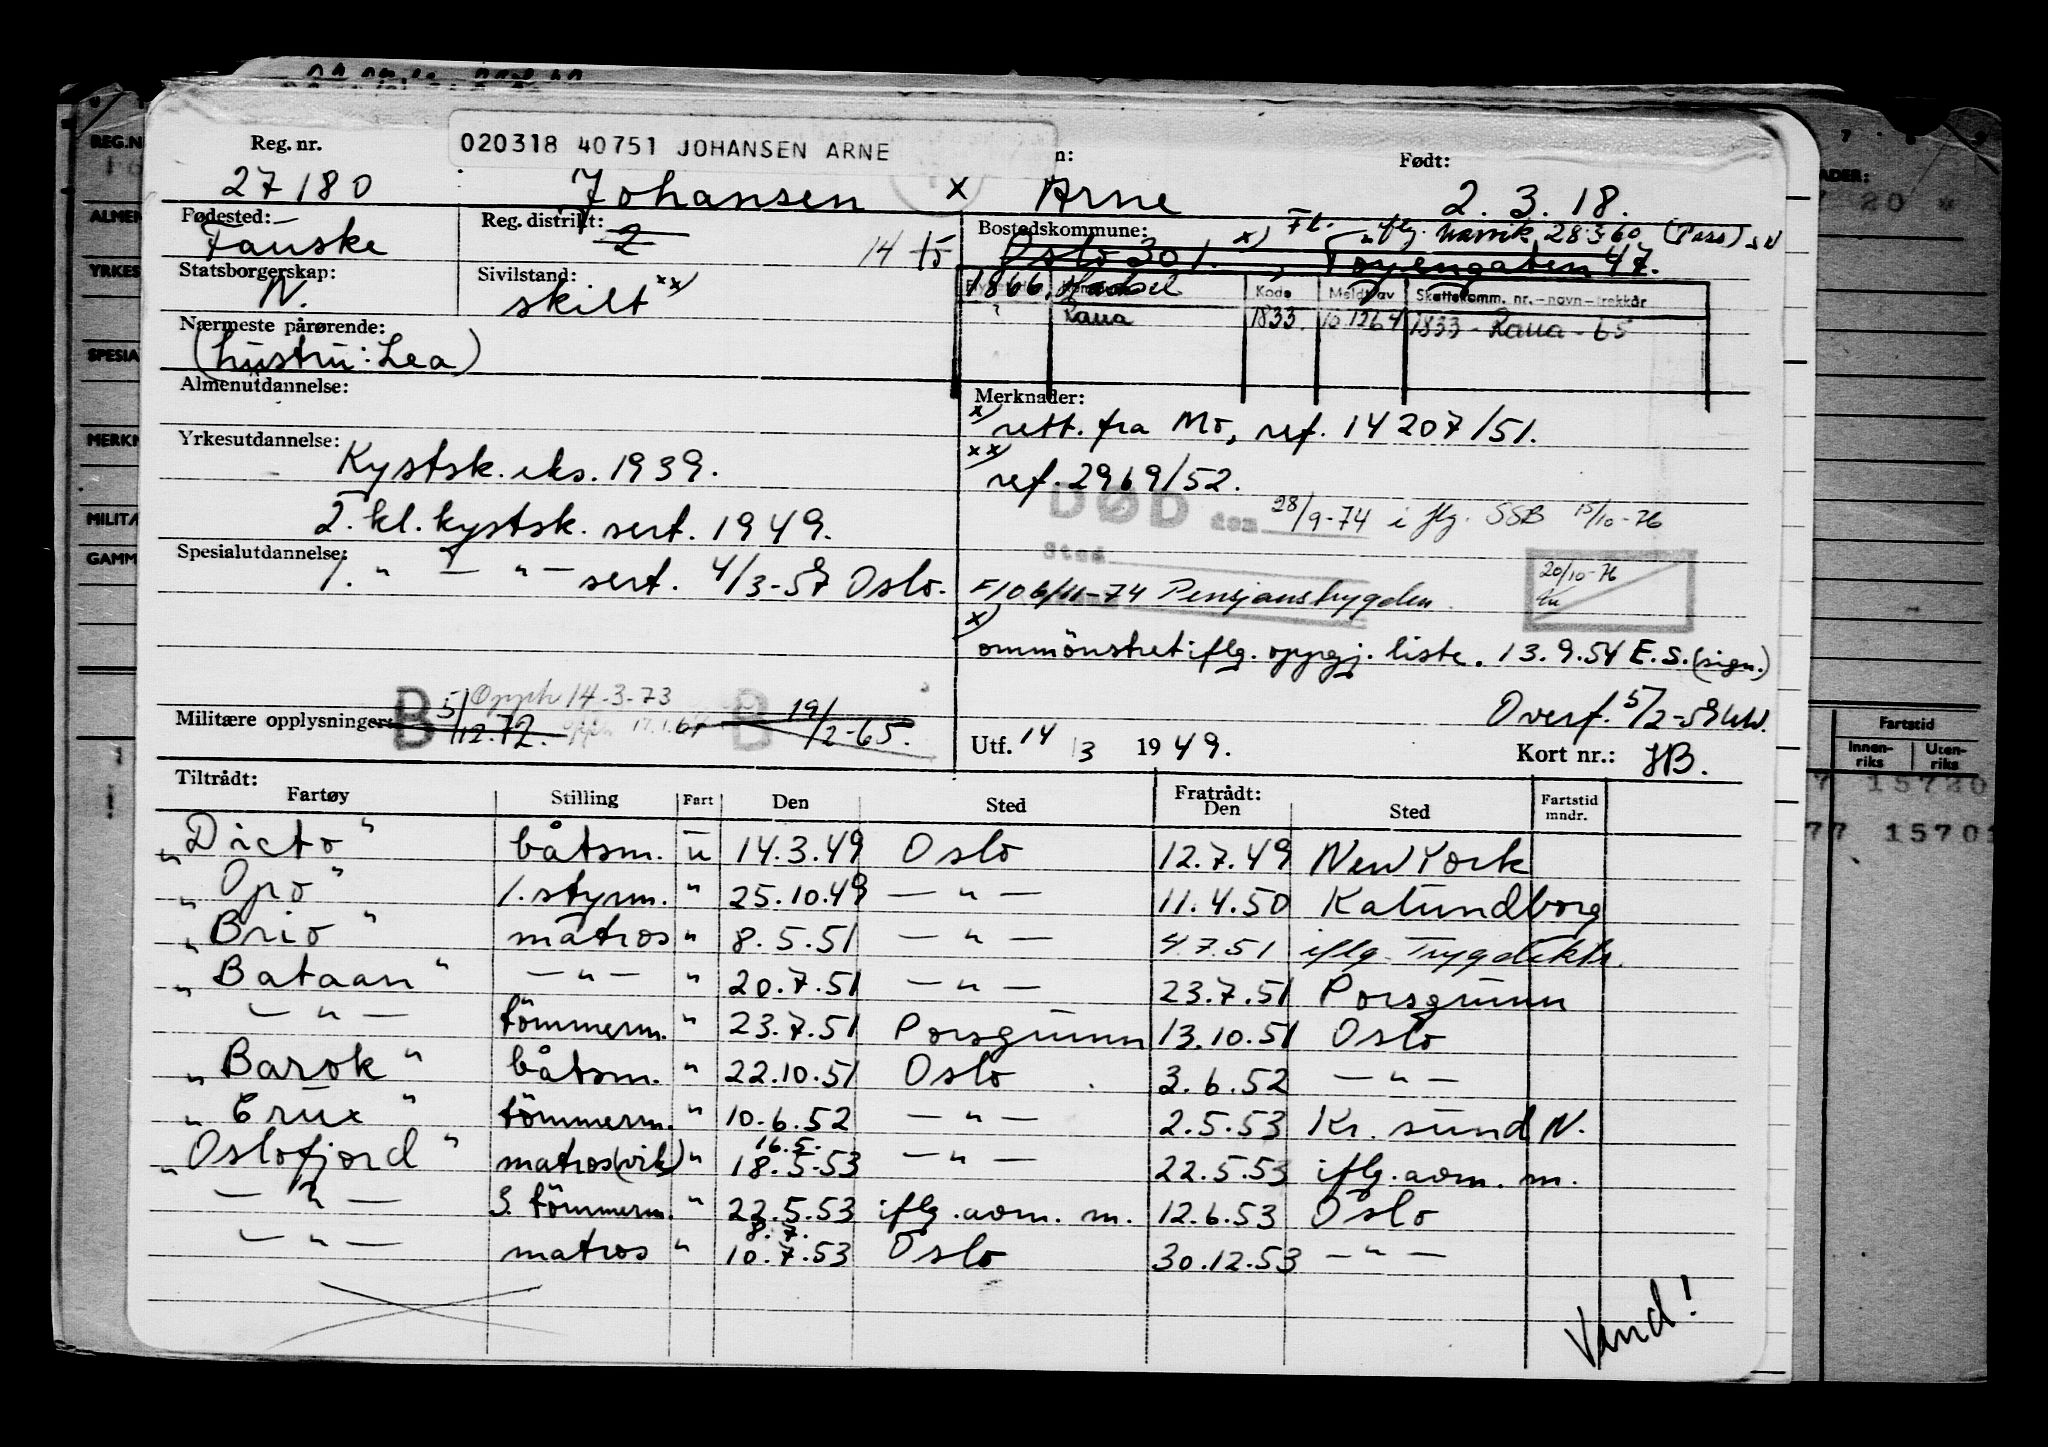 020318 40751 JOHANSEN ARNE
Reg. nr. n: Født:
27180 Johansen x Arne 2. 3. 18.
Fødested: Reg. distrikt: Bostedskommune:
Fauske 2 14 15 Oslo 301. x) Tøyengaten 47.
iflg. Narvik 28.3.60 (Pass)
Statsborgerskap: Sivilstand:
N. skilt xx)
1866. Hadsel Kode Meldt av Skattekomm. nr. – navn – trekkår
Rana 1833. 1833 - Rana - 65
Nærmeste pårørende:
(hustru: Lea)
Almenutdannelse: Merknader:
x) rett. fra Mo, ref. 14207/51.
Yrkesutdannelse:
Kystsk. eks. 1939.
xx) ref. 2969/52.
DØD den 28/9-74 i flg. SSB 15/10-76
Sted
2. kl. kystsk. sert. 1949.
Spesialutdannelse:
1. " — " — sert. 4/3-57 Oslo.
F/0 6/11-74 Pensjonstrygden.
20/10-76
x) ommönstret iflg. oppgj. liste. 13.9.54 E.S. (sign.)
Overf. 5/2-59
Militære opplysninger: B 5/12-72. Opph 14-3-73 B 19/2-65.
Utf. 14 / 3 1949. Kort nr.: HB.
Tiltrådt: Fratrådt:
Fartøy Stilling Fart Den Sted Den Sted Fartstid mndr.
"Dicto" båtsm. u 14.3.49 Oslo 12.7.49 New York
"Opo" 1. styrm. " 25.10.49 — " — 11.4.50 Kalundborg
"Brio" matros " 8.5.51 — " — 4.7.51 iflg. Trygdektr.
"Bataan" — " — " 20.7.51 — " — 23.7.51 Porsgrunn
— " — tömmerm. " 23.7.51 Porsgrunn 13.10.51 Oslo
"Barok" båtsm. " 22.10.51 Oslo 3.6.52 — " —
"Crux" tömmerm. " 10.6.52 — " — 2.5.53 Kr. sund N.
16.5.
"Oslofjord" matros(vik) " 18.5.53 — " — 22.5.53 iflg. avm. m.
— " — 3. tömmerm. " 22.5.53 iflg. avm. m. 12.6.53 Oslo
8.7.
— " — matros " 10.7.53 Oslo 30.12.53 — " —
Vend!
REG.N
ALMEN
YRKES
SPESIA
MERKN
MILITÆ
GAMM
ADER:
20
Fartstid
Innen-riks Uten-riks
7 15720
77 15701